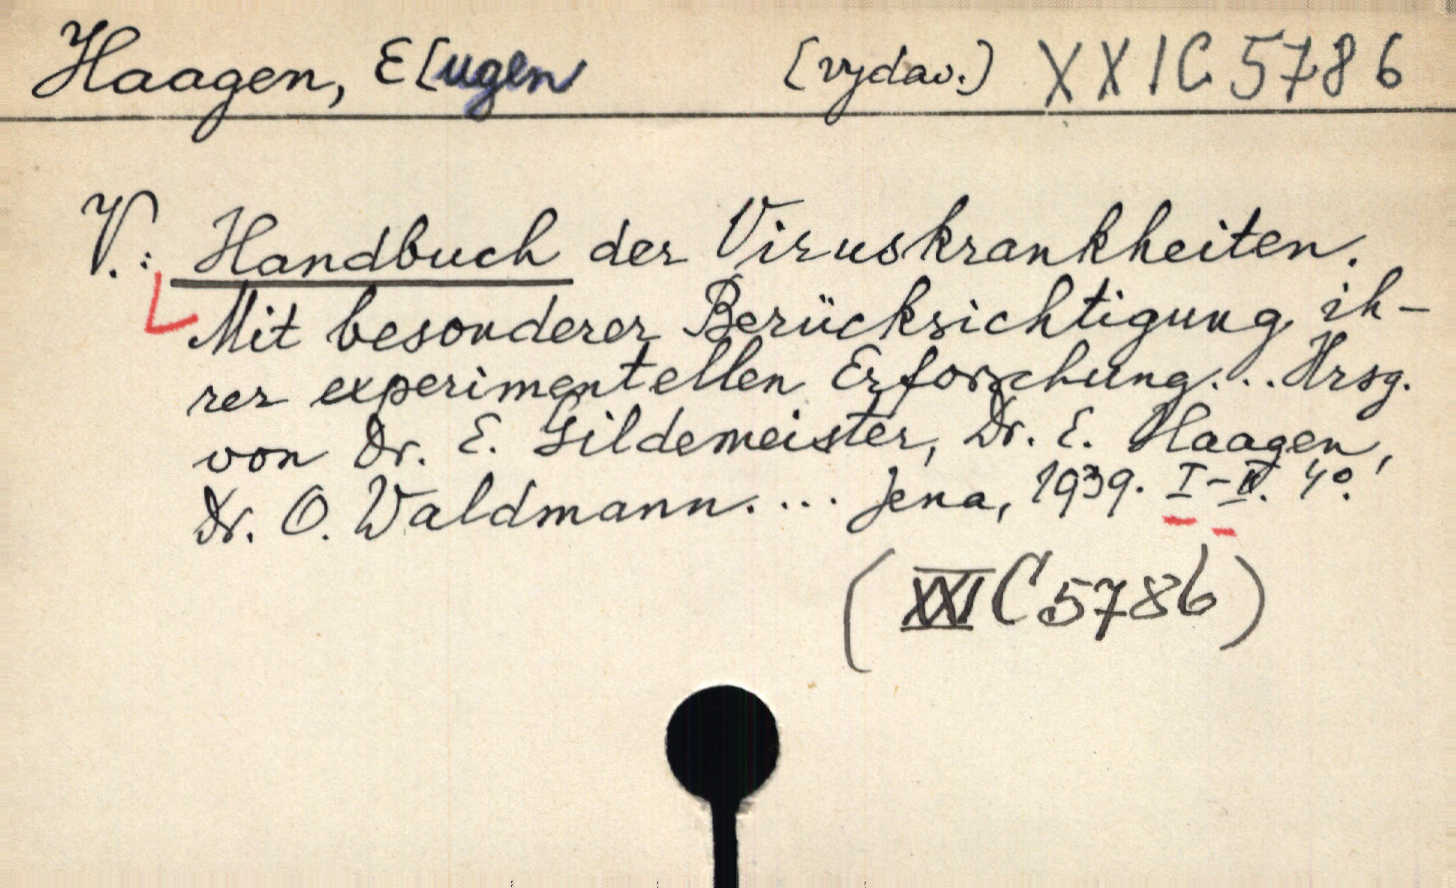 Haagen, E[ugen (vydav.) XXI C 5786
V.: Handbuch der Viruskrankheiten.
Mit besonderer Berücksichtigung ih-
rer experimentellen Erforschung... Hrsg.
von Dr. E. Gildemeister, Dr. E. Haagen,
Dr. O. Waldmann. ... Jena, 1939. I-II. 4°.
(XXI C 5786)